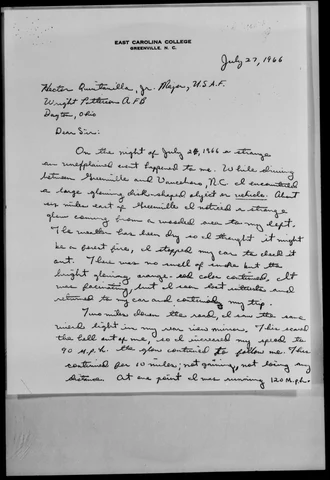 EAST CAROLINA COLLEGE
GREENVILLE, N. C.
July 27, 1966
Hector Quintanilla, Jr. Major, U.S.A.F.
Wright Patterson A.F.B
Dayton, Ohio
Dear Sir:
On the night of July 26, 1966 a strange
an unexplained event happened to me. While driving
between Greenville and Vanceboro, N.C. I encountered
a large glowing disk-shaped object or vehicle. About
six miles east of Greenville I noticed a strange
glow coming from a wooded area to my left.
The weather has been dry so I thought it might
be a forest fire, I stopped my car to check it
out. There was no smell of smoke but the
bright glowing orange-red color continued. It
was fascinating, but I soon lost interest and
returned to my car and continued my trip.
Two miles down the road, I saw the same
weird light in my rear view mirror. This scared
the hell out of me, so I increased my speed to
90 m.p.h. the glow continued to follow me. This
continued for 10 miles; not gaining, not losing any
distance. At one point I was running 120 M.p.h.